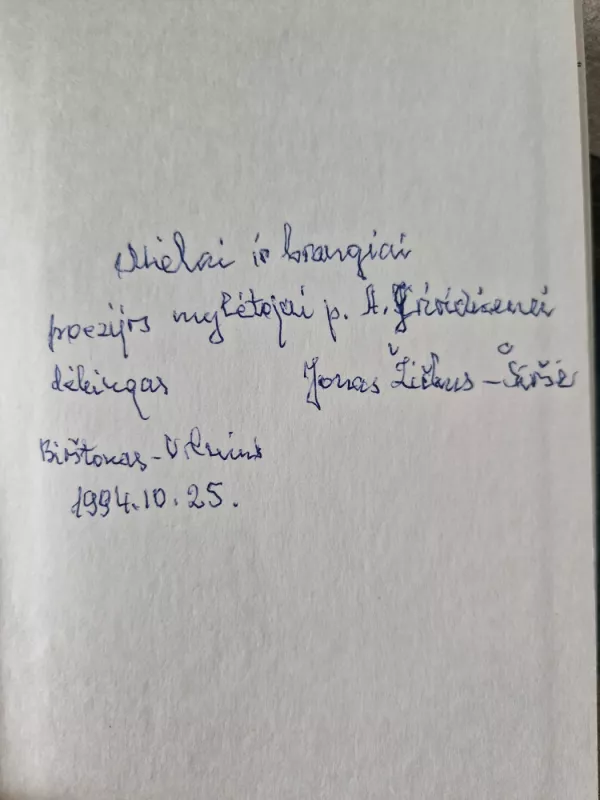 Mielai ir brangiai
poezijos mylėtojai p. A.
dėkingas Jonas
Birštonas - Vilnius
1994.10.25.